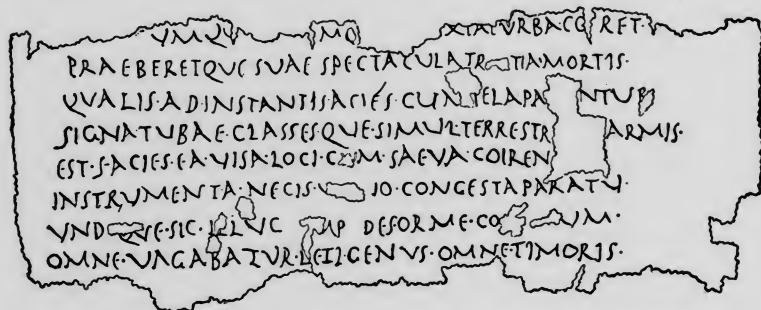 VMQV MQ XIATVRBACO RET·
PRAEBERETQVE SVAE SPECTACVLATR TIA·MORTIS·
QVALIS·ADINSTANTISACIÉS·CVM TELAPA NTVR
SIGNATVBAE·CLASSESQVE·SIMVLTERRESTR ARMIS·
EST·FACIES·EA·VISA·LOCI·CVM·SAEVA·COIREN
INSTRVMENTA·NECIS·V IO·CONGESTAPARATV·
VND QVE·SIC·ILLVC MP DEFORME·CO VM·
OMNE·VAGABATVR·LETI·GENVS·OMNETIMORIS·